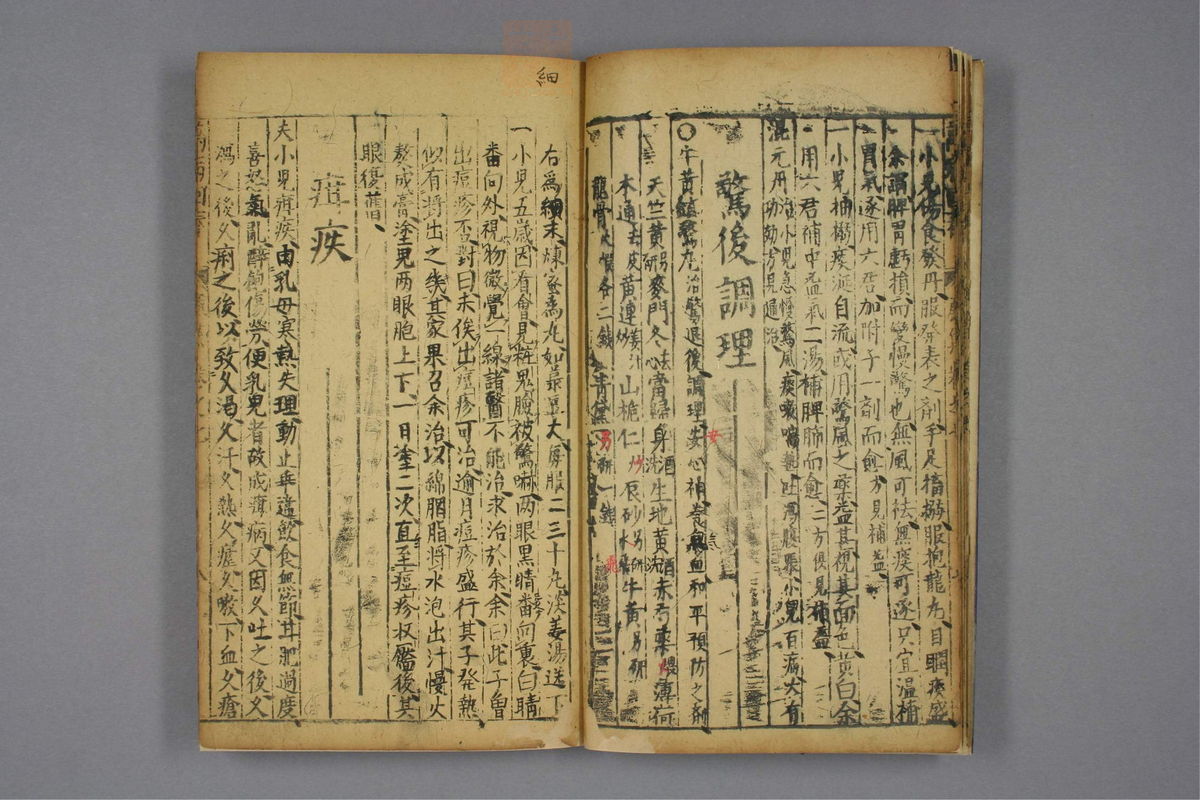 一小兒傷食發丹服發表之劑手足搐搦服抱龍丸目瞤痰盛
余謂脾胃虧損而變慢驚也無風可祛無痰可逐只宜溫補
胃氣遂用六君加附子一劑而愈方見補益
一小兒抽搦痰涎自流或用驚風之藥益甚視其面色黃白余
用六君補中益氣二湯補脾肺而愈二方俱見補益
混元丹治小兒急慢驚風痰嗽喘熱吐瀉腹脹小兒百病大有
功効方見通治
驚後調理
牛黃鎮驚丸治驚退後調理安心神養氣血和平預防之劑
天竺黃另研麥門冬去心當歸身酒洗生地黃酒洗赤芍藥煨薄荷
木通去皮黃連姜汁炒山梔仁炒辰砂另研水飛牛黃另研
龍骨火煅各二錢青黛另研一錢
細
右為細末煉蜜為丸如菉豆大每服二三十丸淡姜湯送下
一小兒五歲因有會見粧鬼臉被驚嚇兩眼黑睛番向裏白睛
番向外視物微覺一線諸醫不能治求治於余余曰此子曾
出痘疹否對曰未俟出痘疹可治逾月痘疹盛行其子發熱
似有將出之幾其家果召余治以綿胭脂將水泡出汁慢火
熬成膏塗兒兩眼胞上下一日塗二次直至痘疹收靨後其
眼復舊
疳疾
夫小兒疳疾由乳母寒熱失理動止乖違飲食無節甘肥過度
喜怒氣亂醉飽傷勞便乳兒者故成疳病又因久吐之後久
瀉之後久痢之後以致久渴久汗久熱久瘧久嗽下血久瘡